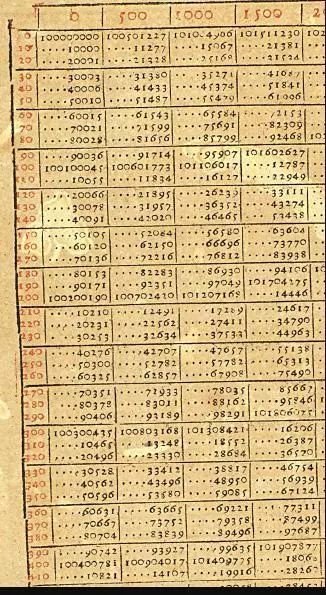 0 500 1000 1500 2
0 100000000 100501227 101004966 101511230 102
10 ....10000 ....11277 ....15067 ....21381
20 ....20001 ....21328 ....25168 ....31534
30 ....30003 ....31380 ....35271 ....41687
40 ....40006 ....41433 ....45374 ....51841
50 ....50010 ....51487 ....55479 ....61996
60 ....60015 ....61543 ....65584 ....72153
70 ....70021 ....71599 ....75691 ....82309
80 ....80028 ....81656 ....85799 ....92468 102
90 ....90036 ....91714 ....95907 101602627
100 100100045 100601773 101106017 ....12787
110 ....10055 ....11834 ....16127 ....22949
120 ....20066 ....21895 ....26239 ....33111
130 ....30078 ....31957 ....36352 ....43274
140 ....40091 ....42020 ....46465 ....53438
150 ....50105 ....52084 ....56580 ....63604
160 ....60120 ....62150 ....66696 ....73770
170 ....70136 ....72216 ....76812 ....83938
180 ....80153 ....82283 ....86930 ....94106 10
190 ....90171 ....92351 ....97049 101704275
200 100200190 100702420 101207168 ....14446
210 ....10210 ....12491 ....17289 ....24617
220 ....20231 ....22562 ....27411 ....34790
230 ....30253 ....32634 ....37533 ....44963
240 ....40276 ....42707 ....47657 ....55138
250 ....50300 ....52782 ....57782 ....65313
260 ....60325 ....62857 ....67908 ....75490
270 ....70351 ....72933 ....78035 ....85667
280 ....80378 ....83011 ....88162 ....95846
290 ....90406 ....93189 ....98291 101806025
300 100300435 100803168 101308421 ....16206
310 ....10465 ....13248 ....18552 ....26387
320 ....20496 ....23330 ....28684 ....36570
330 ....30528 ....33412 ....38817 ....46754
340 ....40562 ....43496 ....48950 ....56939
350 ....50596 ....53580 ....59085 ....67124
360 ....60631 ....63665 ....69221 ....77311
370 ....70667 ....73752 ....79358 ....87499
380 ....80704 ....83839 ....89496 ....97687
390 ....90742 ....93927 ....99635 101907877
400 100400781 100904017 101409775 ....18068
410 ....10821 ....14107 ....19916